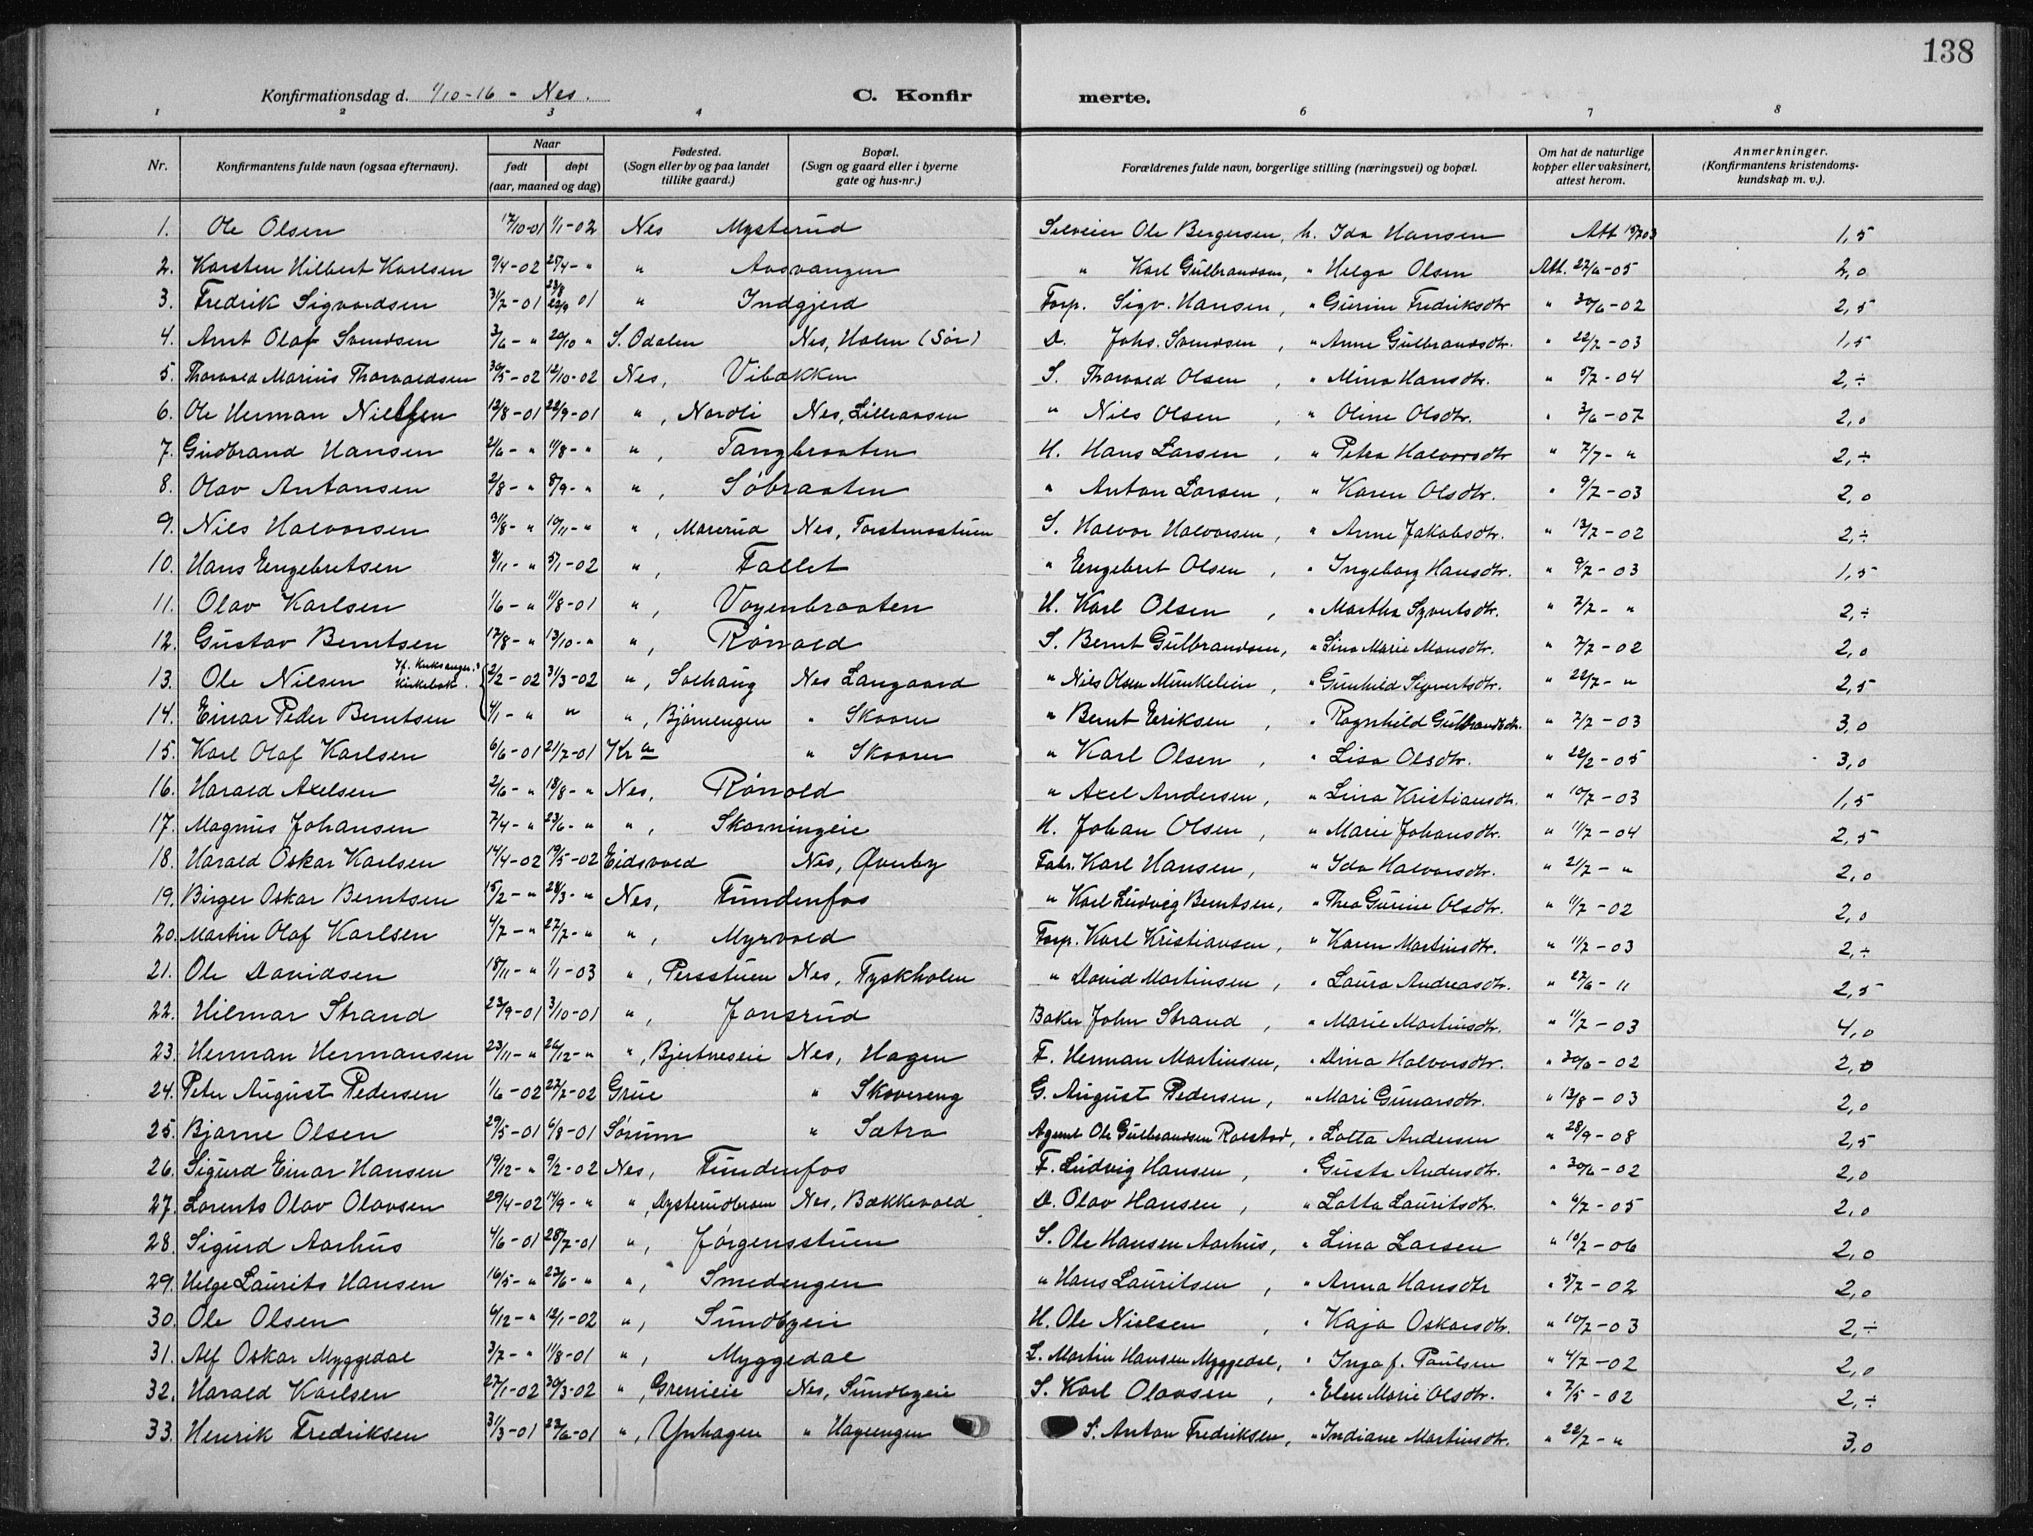 138
Konfirmationsdag d. 1/10-16 - Nes. C. Konfirmerte.
1 2 3 4 6 7 8
Nr. Konfirmantens fulde navn (ogsaa efternavn). Naar født døpt (aar, maaned og dag) Fødested. (Sogn eller by og paa landet tillike gaard.) Bopæl. (Sogn og gaard eller i byerne gate og hus-nr.) Forældrenes fulde navn, borgerlige stilling (næringsvei) og bopæl. Om hat de naturlige kopper eller vaksinert, attest herom. Anmerkninger. (Konfirmantens kristendomskundskap m. v.).
1. Ole Olsen 17/10-01 1/1-02 Nes Mysterud Selveier Ole Bergersen, h. Ida Hansen Att 03 1,5
2. Karsten Hilbert Karlsen 9/4-02 25/4-" " Aasvangen " Karl Gulbrandsen, " Helga Olsen Att. 22/6-05 2,0
3. Fredrik Sigvardsen 3/7-01 22/9 01 " Indgjerd Forp. Sigv. Hansen, " Gurine Fredriksdtr " 30/6-02 2,5
4. Arnt Olaf Svendsen 3/6-" 20/10 " S. Odalen Nes, Holen (Sør) D. Johs. Svendsen, " Anne Gulbrandsdtr. " 22/7-03 1,5
5. Thorvald Marius Thorvaldsen 30/5-02 12/10-02 Nes, Vibakken S. Thorvald Olsen, " Mina Hansdtr. " 5/7-04 2,÷
6. Ole Herman Nielsen 12/8-01 22/9-01 ", Nordli Nes, Lilleaasen " Nils Olsen, " Oline Olsdtr. " 3/6-07 2,0
7. Gudbrand Hansen 2/6-" 11/8-" ", Tangbraaten H. Hans Larsen, " Petra Halvorsdtr " 7/7-" 2,÷
8. Olav Antonsen 2/8-" 8/9-" ", Søbraaten " Anton Larsen, " Karen Olsdtr. " 9/7-03 2,0
9. Nils Halvorsen 31/8-" 10/11-" ", Marerud Nes, S. Halvor Halvorsen, " Anne Jakobsdtr. " 13/7-02 2,÷
10. Hans Engebretsen 8/11-" 5/1-02 ", Fallet " Engebret Olsen, " Ingeborg Hansdtr. " 9/7-03 1,5
11. Olav Karlsen 1/6-" 11/8-01 ", Vogenbraaten H. Karl Olsen, " Martha Syvertsdtr. " 7/7-" 2,÷
12. Gustav Berntsen 17/8-" 13/10-" ", Rønold S. Bernt Gulbrandsen, " Lina Marie Monsdtr. " 7/7-02 2,0
13. Ole Nilsen 2/2-02 31/3-02 ", Solhaug Nes Langaard " Nils Olsen Munkelien, " Gunhild Sigvertsdtr. " 22/7-" 2,5
14. Einar Peder Berntsen 4/1-" " ", Bjørnengen " Skaaen " Bernt Eriksen, " Ragnhild Gulbrandsdtr. " 7/7-03 3,0
15. Karl Olaf Karlsen 6/6-01 21/7-01 Kra " Skaaen " Karl Olsen, " Lisa Olsdtr. " 22/2-05 3,0
16. Harald Axelsen 2/6-" 18/8-" Nes, Rønold " Axel Andersen, " Lina Kristiansdtr. " 10/7-03 1,5
17. Magnus Johansen 7/4-" 23/6-" ", Skorningeie H. Johan Olsen, " Marie Johansdtr. " 11/7-04 2,5
18. Harald Oskar Karlsen 14/4-02 19/5-02 Eidsvold Nes, Øvreby Fabr. Karl Hansen, " Ida Halvorsdtr. " 21/7-" 2,0
19. Birger Oskar Berntsen 15/2-" 28/3-" Nes, Fundenfos " Karl Ludvig Berntsen, " Thea Gurine Olsdtr. " 11/7-02 2,0
20. Martin Olaf Karlsen 4/7-" 27/7-" ", Myrvold Forp. Karl Kristiansen, " Karen Martinsdtr. " 11/7-03 2,÷
21. Ole Davidsen 18/11-" 1/1-03 ", Persstuen Nes, Tyskholen " David Martinsen, " Laura Andreasdtr. " 27/6-11 2,5
22. Hilmar Strand 23/9-01 3/10-01 ", Jonsrud Baker John Strand, " Marie Martinsdtr. " 11/7-03 4,0
23. Herman Hermansen 23/11-" 26/12-" ", Bjertneseie Nes, Hagen F. Herman Martinsen, " Drina Halvorsdtr. " 30/6-02 2,0
24. Peter August Pedersen 1/6-02 27/7-02 Grue " Skovereng G. August Pedersen, " Mari Gunarsdtr. " 13/8-03 2,0
25. Bjarne Olsen 29/5-01 6/8-01 Sørum " Sætra Agent Ole Gulbrandsen Rolstad, " Lotta Andersen " 28/9-08 2,5
26. Sigurd Einar Hansen 19/12-" 9/2-02 Nes, Fundenfos F. Ludvig Hansen, " Gusta Andersdtr. " 30/6-02 2,0
27. Lorents Olav Olavsen 29/4-02 14/9-" ", Nes, Bækkevold D. Olav Hansen, " Lotta Lauritsdtr. " 6/7-05 2,0
28. Sigurd Aarhus 4/6-01 28/7-01 ", Jørgensstuen S. Ole Hansen Aarhus, " Lina Larsen " 10/7-06 2,0
29. Helge Laurits Hansen 16/5-" 23/6-" ", Smedengen " Hans Lauritsen, " Anna Hansdtr " 5/7-02 2,0
30. Ole Olsen 4/12-" 12/1-02 ", Sundbyeie H. Ole Nielsen, " Kaja Oskarsdtr. " 10/7-03 2,÷
31. Alf Oskar Myggedal 3/7-" 11/8-01 ", Myggedal L. Martin Hansen Myggedal, " Inga f. Paulsen " 4/7-02 2,0
32. Harald Karlsen 27/1-02 30/3-02 ", Grenieie Nes, Sundbyeie S. Karl Olavsen, " Elen Marie Olsdtr. " 7/5-02 2,÷
33. Henrik Fredriksen 31/3-01 23/6-01 ", Ynhagen " Hageengen S. Anton Fredriksen, " Indiane Martinsdtr. " 22/7-" 3,0